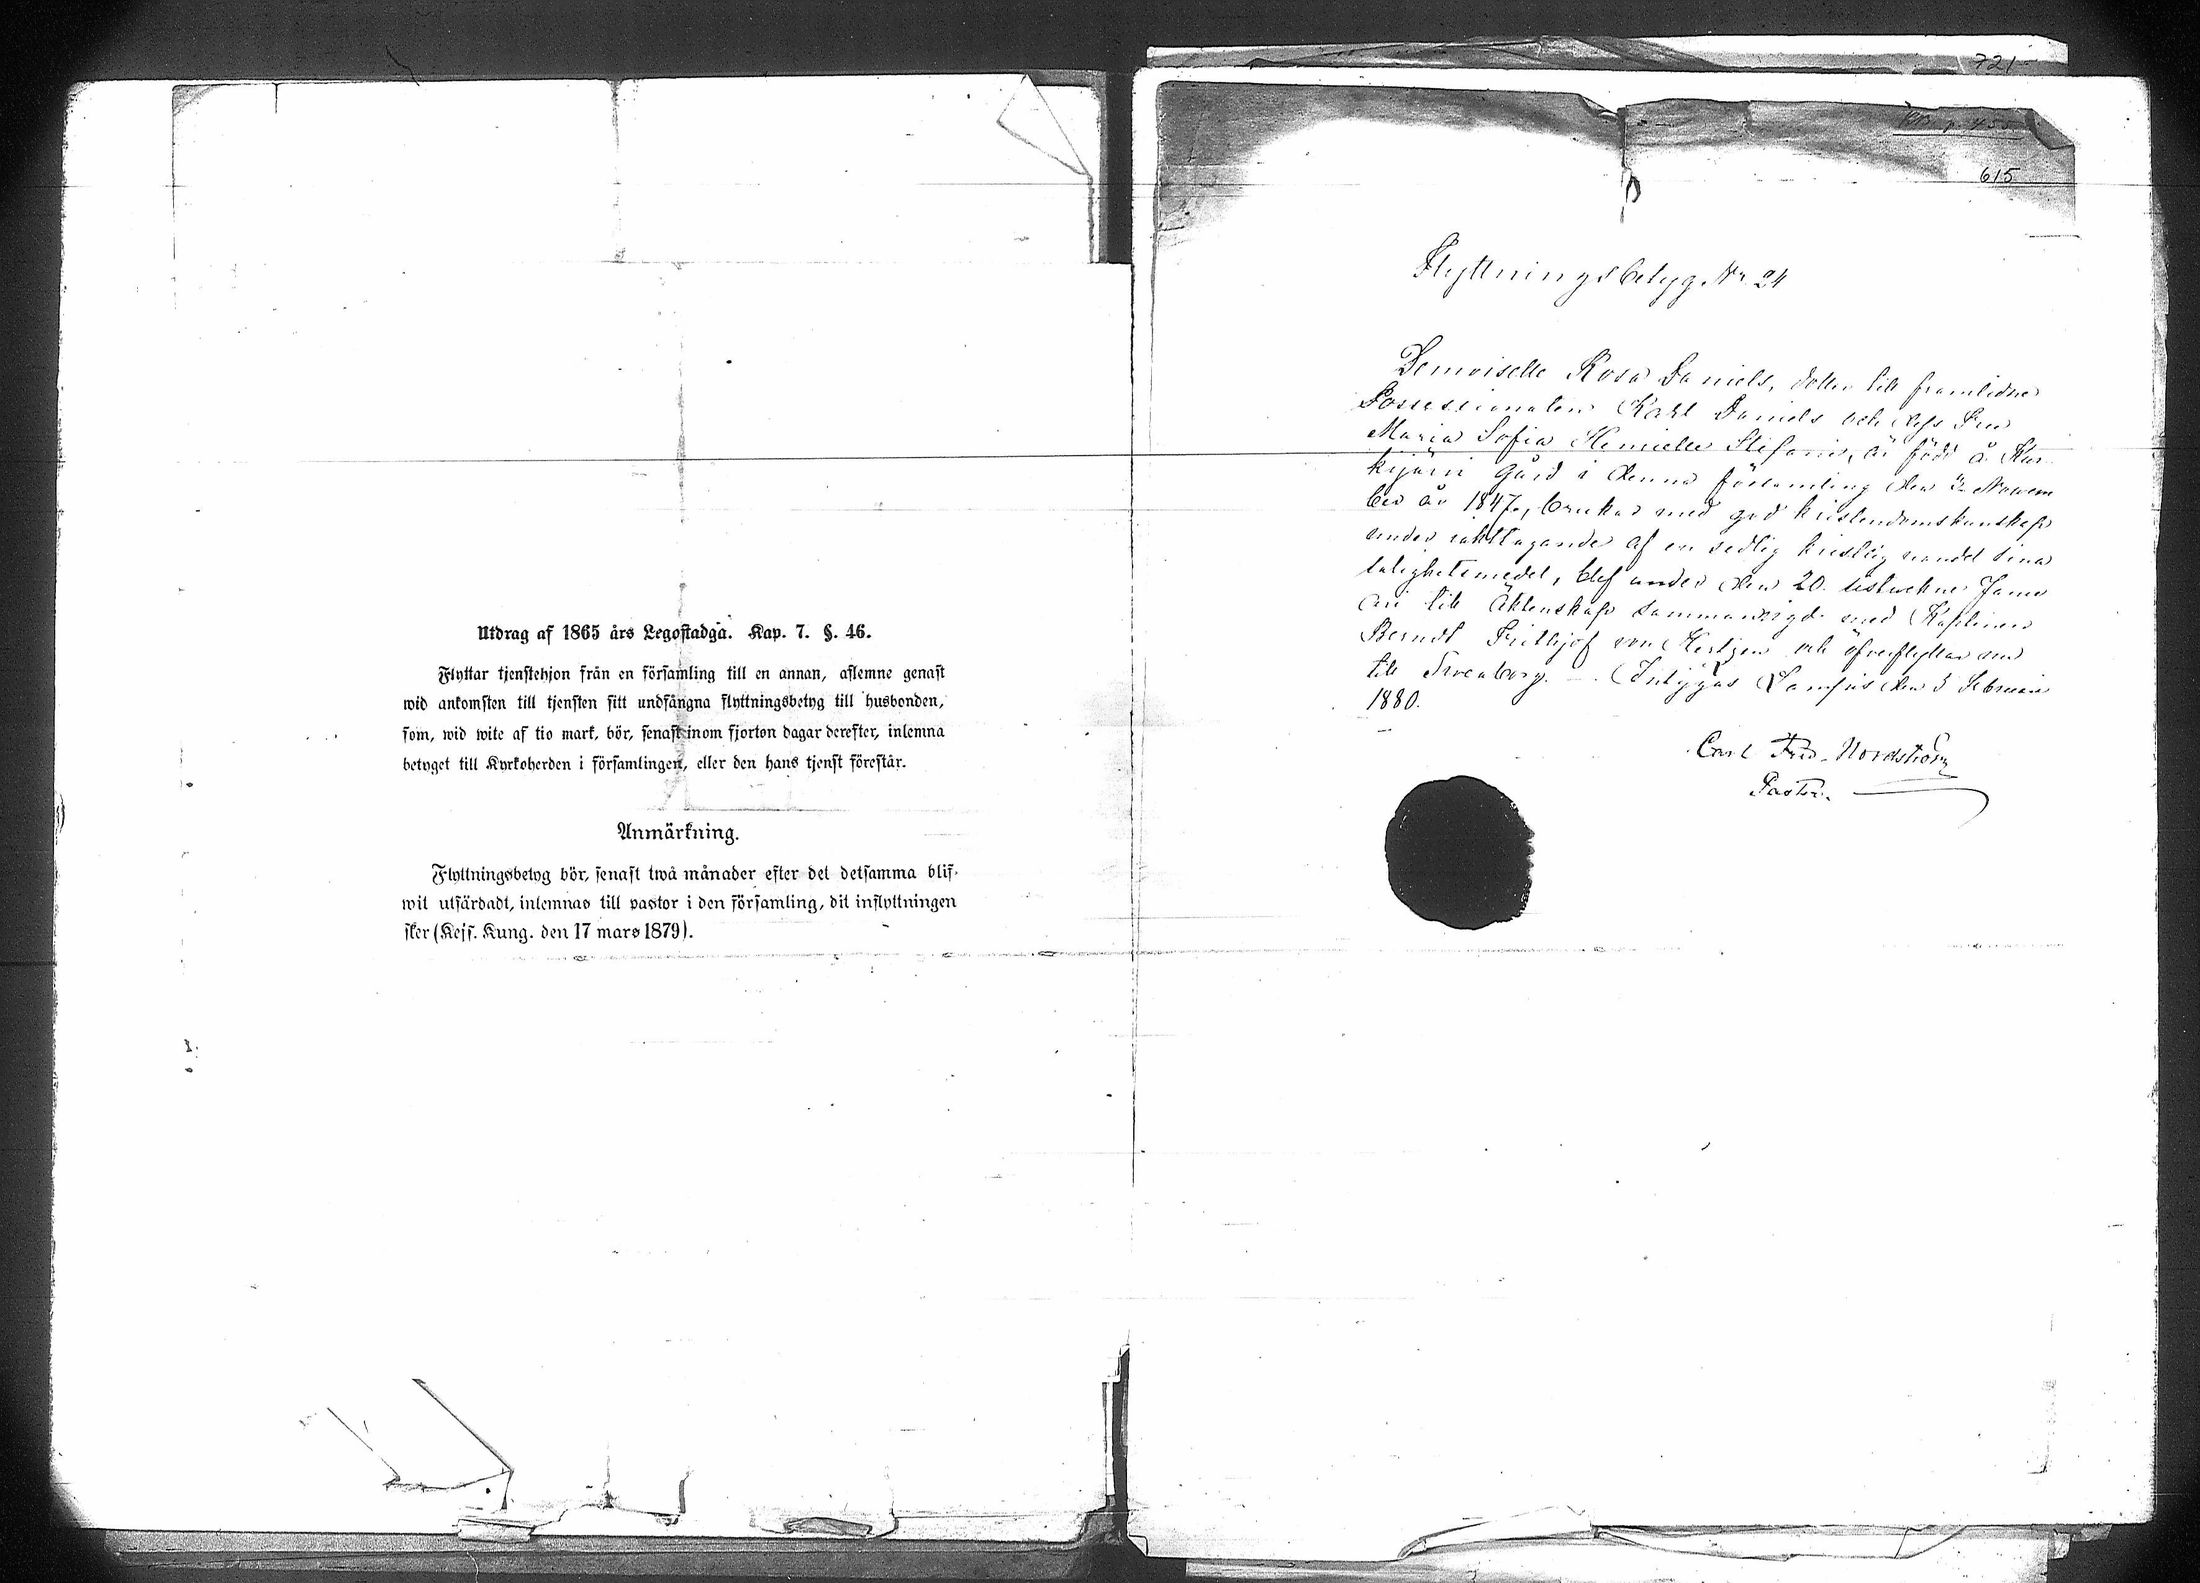 Utdrag af 1865 års Legostadga. Kap. 7. §. 46.
Flyttar tjenstehjon från en församling till en annan, aflemne genast
wid ankomsten till tjensten sitt undfångna flyttningsbetyg till husbonden,
som, wid wite af tio mark, bör, senast inom fjorton dagar derefter, inlemna
betyget till Kyrkoherden i församlingen, eller den hans tjenst förestår.
Anmärkning.
Flyttningsbetyg bör, senast twå månader efter det detsamma blif-
wit utfärdadt, inlemnas till pastor i den församling, dit inflyttningen
sker (Kejs. Kung. den 17 mars 1879).
721
615
Flyttningsbetyg No 24
Demoiselle Rosa Daniels, dotter till framlidne
Possessionaten Karl Daniels och dess Fru
Maria Sofia Stefanie, är född å Kur-
kijärvi Gård i denna församling den Novem
ber år 1847, brukar med god kristendomskunskap
under iakttagande af en sedlig kristlig vandel sina
salighetsmedel, blef under den 20 sistvekne Janu
ari till Äktenskap sammanvigd med Kaptenen
Berndt Frithjof von Hertzen och öfverflyttar nu
till Sveaborg. — Intygas Lampis den 3 Februari
1880.
Carl Fred. Nordström
Pastor.